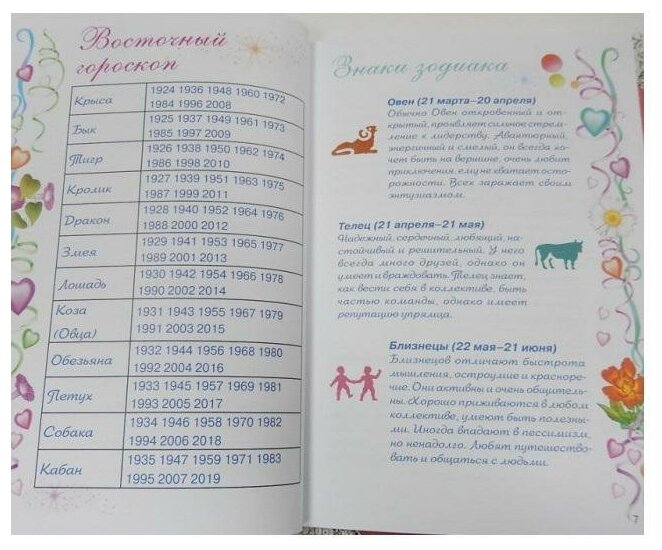 Восточный
гороскоп
Крыса
1924 1936 1948 1960 1972
1984 1996 2008
Бык
1925 1937 1949 1961 1973
1985 1997 2009
Тигр
1926 1938 1950 1962 1974
1986 1998 2010
Кролик
1927 1939 1951 1963 1975
1987 1999 2011
Дракон
1928 1940 1952 1964 1976
1988 2000 2012
Змея
1929 1941 1953 1965 1977
1989 2001 2013
Лошадь
1930 1942 1954 1966 1978
1990 2002 2014
Коза
(Овца)
1931 1943 1955 1967 1979
1991 2003 2015
Обезьяна
1932 1944 1956 1968 1980
1992 2004 2016
Петух
1933 1945 1957 1969 1981
1993 2005 2017
Собака
1934 1946 1958 1970 1982
1994 2006 2018
Кабан
1935 1947 1959 1971 1983
1995 2007 2019
Знаки зодиака
Овен (21 марта–20 апреля)
Обычно Овен откровенный и от-
крытый, проявляет сильное стрем-
ление к лидерству. Авантюрный,
энергичный и смелый, он всегда хо-
чет быть на вершине, очень любит
приключения, ему не хватает осто-
рожности. Всех заражает своим
энтузиазмом.
Телец (21 апреля–21 мая)
Надежный, сердечный, любящий, на-
стойчивый и решительный. У него
всегда много друзей, однако он
умеет и враждовать. Телец знает,
как вести себя в коллективе, быть
частью команды, однако имеет
репутацию упрямца.
Близнецы (22 мая–21 июня)
Близнецов отличают быстрота
мышления, остроумие и красноре-
чие. Они активны и очень общитель-
ны. Хорошо приживаются в любом
коллективе, умеют быть полезны-
ми. Иногда впадают в пессимизм,
но ненадолго. Любят путешество-
вать и общаться с людьми.
7